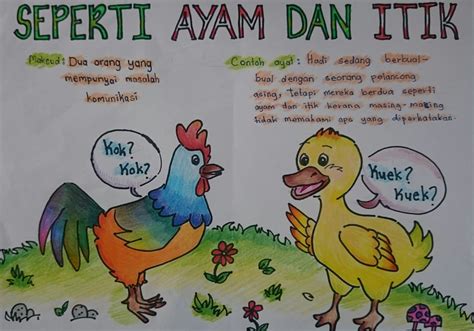 SEPERTI AYAM DAN ITIK
Maksud : Dua orang yang
mempunyai masalah
komunikasi
Contoh ayat : Hadi sedang berbual-
bual dengan seorang pelancong
asing, tetapi mereka berdua seperti
ayam dan itik kerana masing-masing
tidak memahami apa yang diperkatakan.
Kok?
Kok?
Kuek?
Kuek?